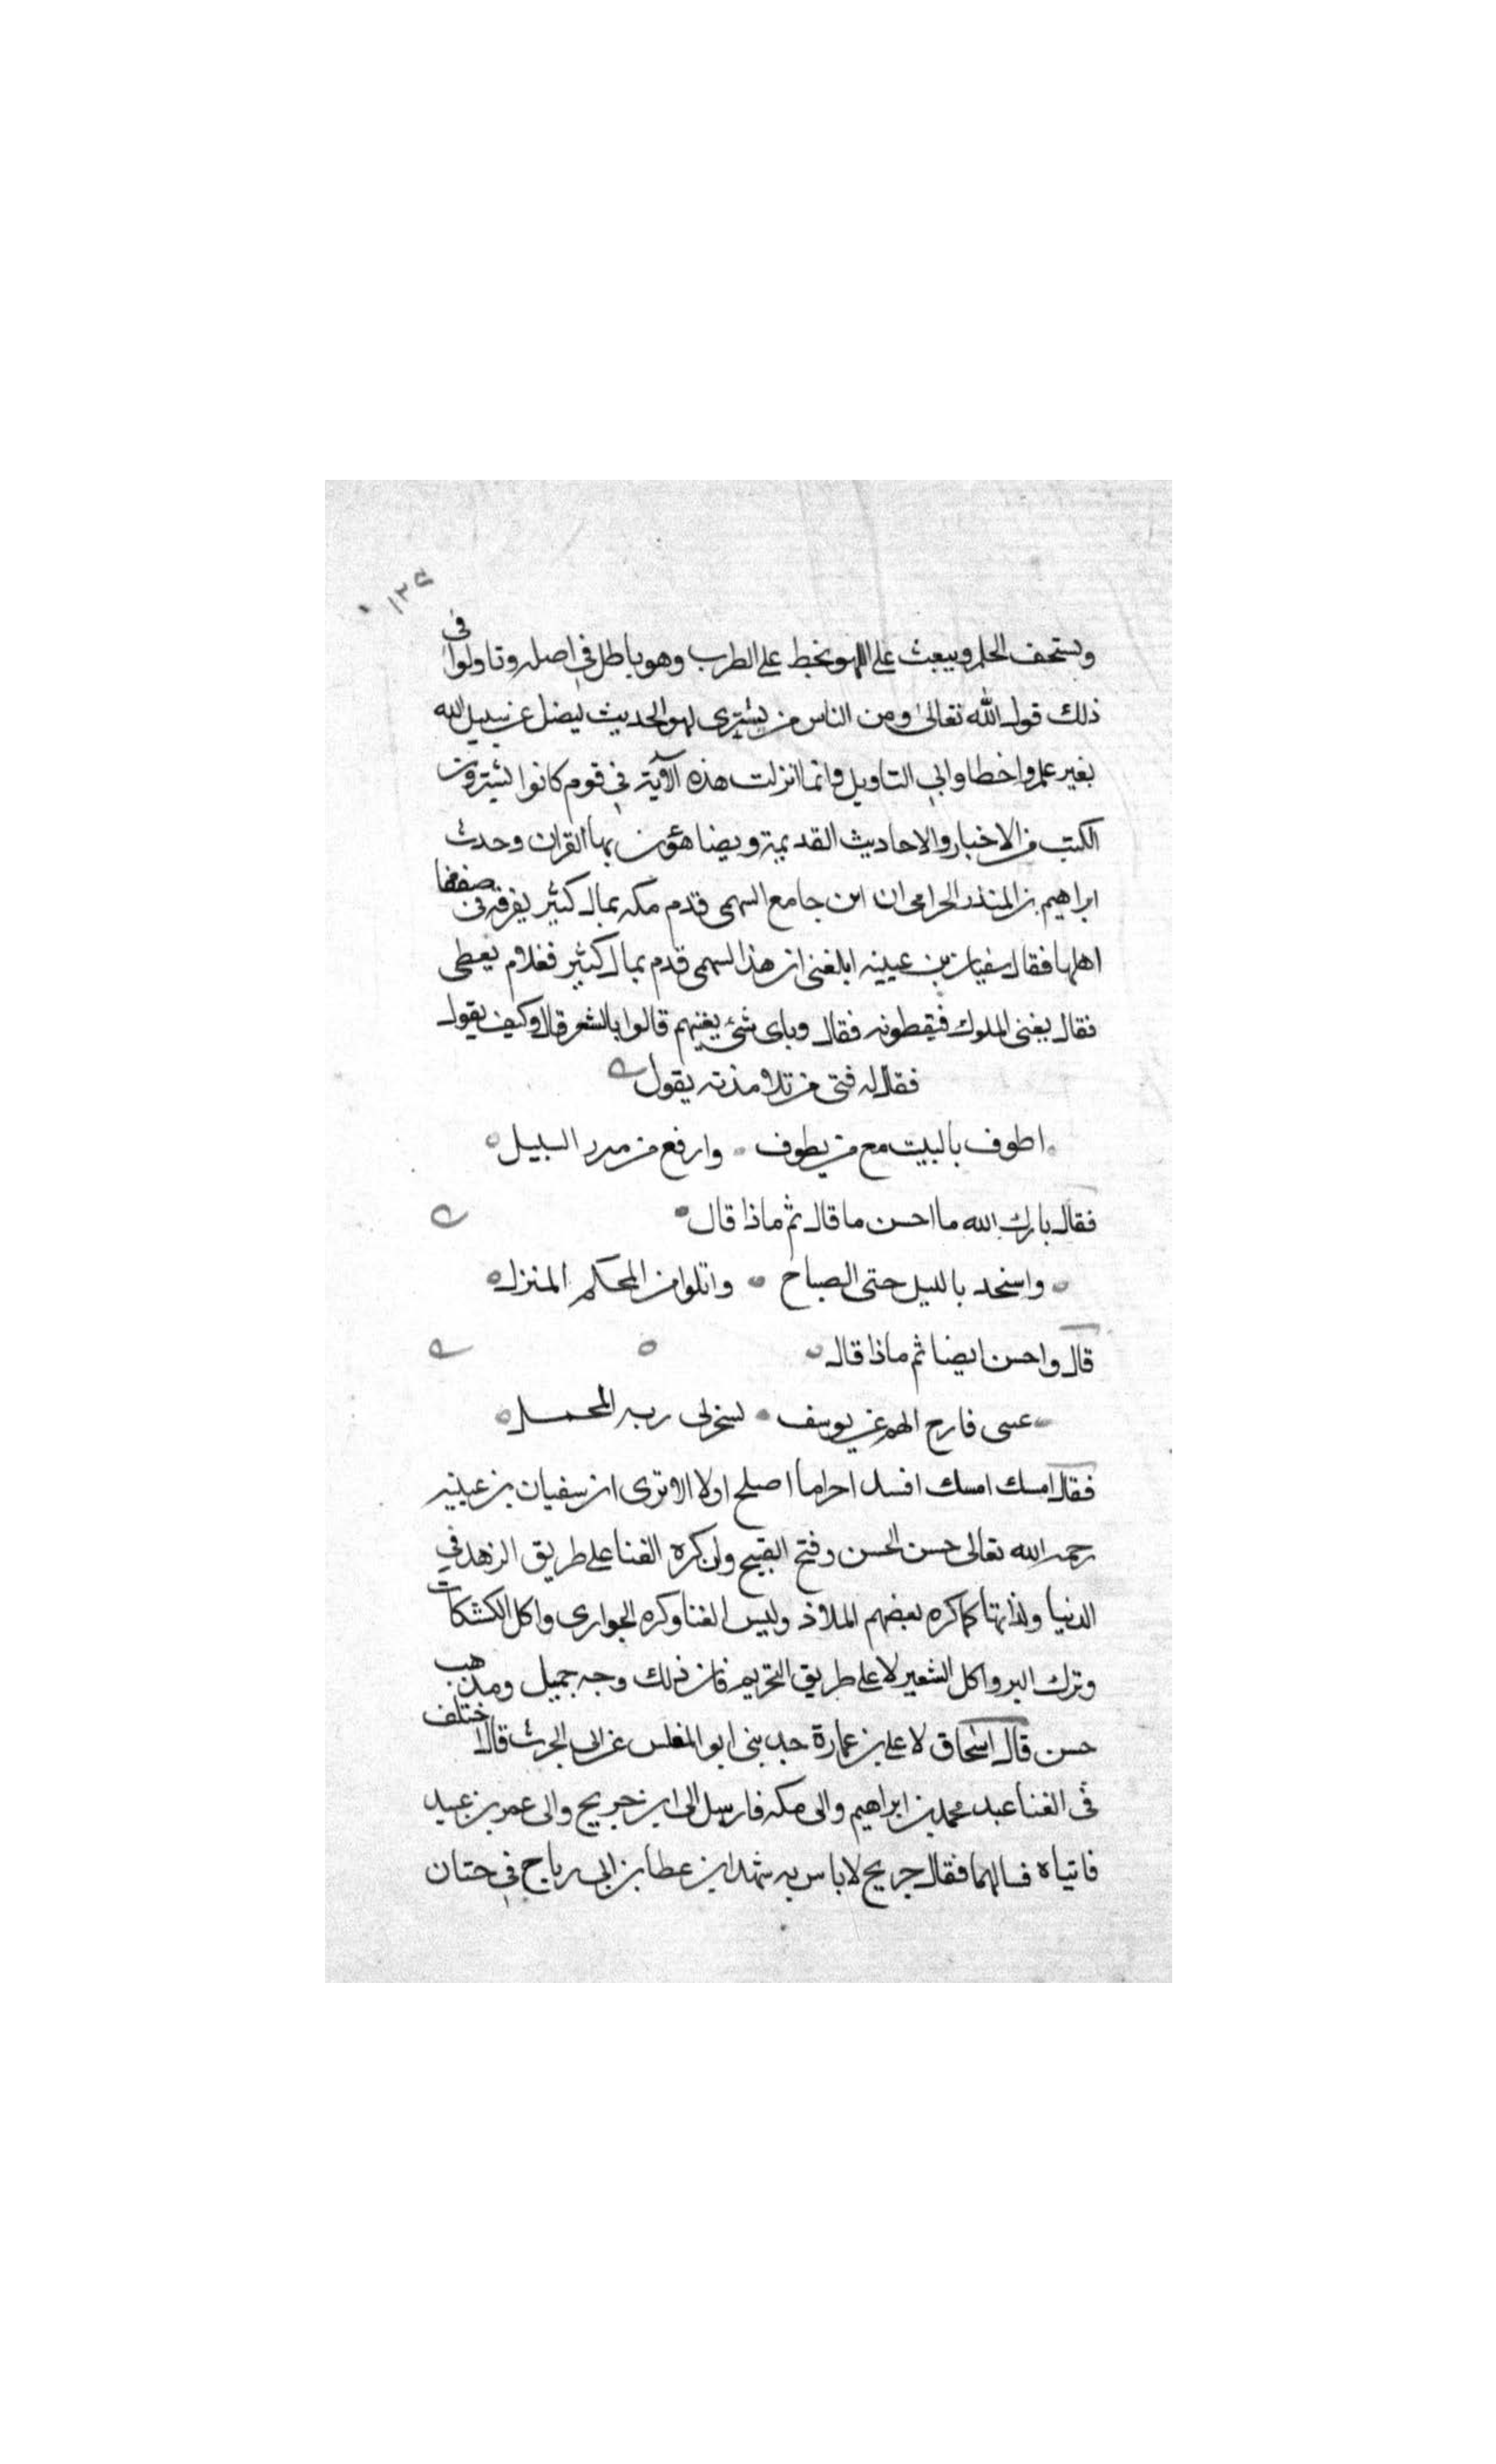 ١٣٥
ويستخف الحلم ويبعث على اللهو ويخط على الطرب وهو باطل في اصله وتاولوا في
ذلك قول الله تعالى ومن الناس من يشترى لهو الحديث ليضل عن سبيل الله
بغير علم واخطاوا في التاويل وانما انزلت هذه الآية في قوم كانوا يشترون
الكتب من الاخبار والاحاديث القديمة ويضاهؤن بها القران وحدث
ابراهيم بن المنذر الحرامى ان ابن جامع السهمى قدم مكه بمال كثير يفرقه فى
اهلها فقال سفيان بن عيينه ابلغنى ان هذا السهمى قدم بمال كثير فغلام يعطى
فقال يغنى الملوك فيقطونه فقال وباى شئ يغنيهم قالوا بالشعر قال وكيف يقول
فقال له فتى من تلامذته يقول
اطوف بالبيت مع من يطوف وارفع من مرر السبيل
فقال بارك الله ما احسن ما قال ثم ماذا قال
واسجد بالليل حتى الصباح واتلوا من المحكم المنزل
قال واحسن ايضا ثم ماذا قال
عسى فارح الهم عن يوسف يسخر لى ربه المحمل
فقال امسك امسك افسد اخراما اصلح اولا الا ترى ان سفيان بن عيينه
رحمه الله تعالى حسن الحسن وقبح القبيح وان كره الغنا على طريق الزهد في
الدنيا ولذاتها كما كره بعضهم الملاذ وليس الغنا وكره الجوارى واكل الكشكات
وترك البر واكل الشعير لا على طريق التحريم فان ذلك وجه جميل ومذهب
حسن قال اسحاق لا على بن عمارة حدثنى ابو المغلس عن ابى الحرث قال اختلف
فى الغنا عبد محمد بن ابراهيم والى مكه فارسل الى ابن جريح والى عمر بن عبيد
فاتياه فسالهما فقال جريح لا باس به شهد ابن عطا بن ابى رباح في ختان